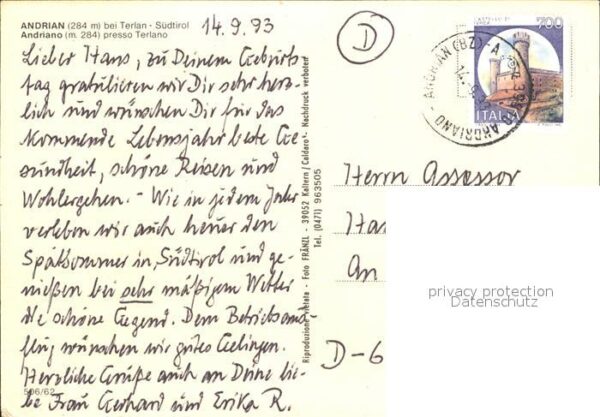 ANDRIAN (284 m) bei Terlan - Südtirol
Andriano (m. 284) presso Terlano
14.9.93
Lieber Hans, zu Deinem Geburts
tag gratulieren wir Dir sehr herz
lich und wünschen Dir für das
kommende Lebensjahr beste Ge
sundheit, schöne Reisen und
Wohlergehen. - Wie in jedem Jahr
verleben wir auch heuer den
Spätsommer in Südtirol und ge-
nießen bei sehr mäßigem Wetter
die schöne Gegend. Dem Betriebsaus-
flug wünschen wir gutes Gelingen.
Herzliche Grüße auch an Deine lie-
be Frau Gerhard und Erika R.
596/62
Riproduzione vietata - Foto FRÄNZL - 39052 Kaltern/Caldaro - Nachdruck verboten
Tel. (0471) 963505
D
700
ITALIA
ANDRIAN (BZ)
ANDRIANO
Herrn Assessor
Ha
An
D-6
privacy protection
Datenschutz